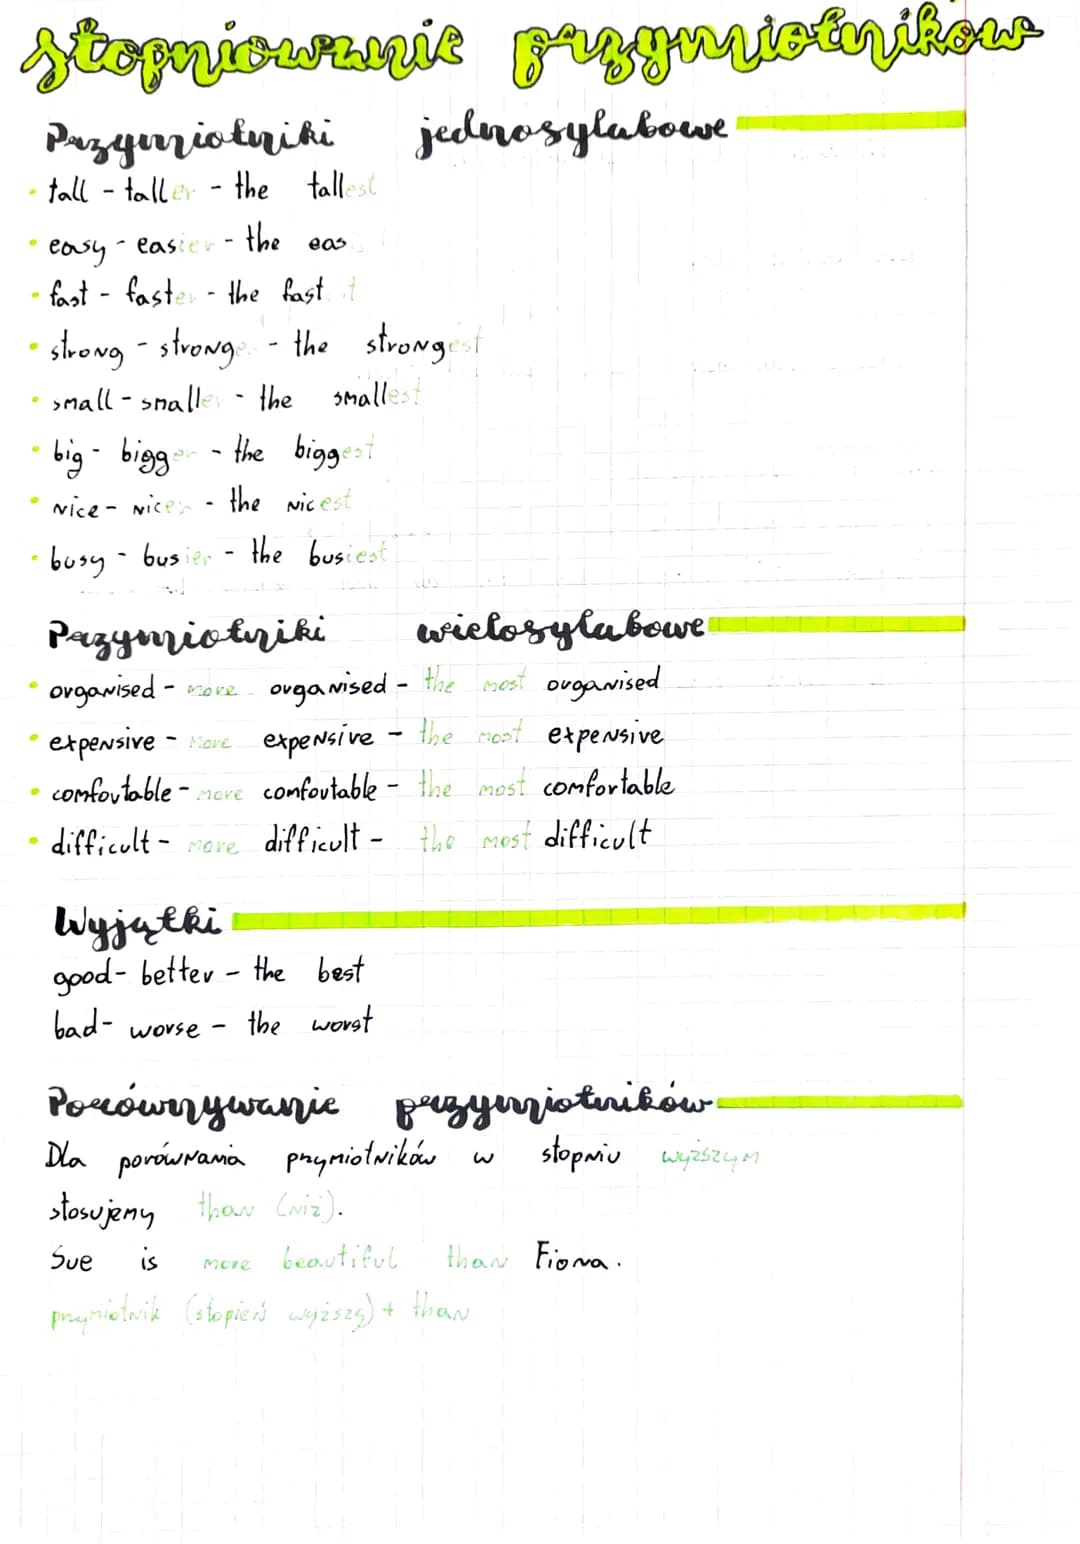 stopniowanie przymiotników
Przymiotniki jednosylabowe
• tall - taller - the tallest
• easy - easier - the eas
• fast - faster - the fast t
• strong - stronge - the strongest
• small - smaller - the smallest
• big - bigger - the biggest
• nice - nicer - the nicest
• busy - busier - the busiest
Przymiotniki wielosylabowe
• organised - more organised - the most organised
• expensive - more expensive - the most expensive
• comfortable - more comfortable - the most comfortable
• difficult - more difficult - the most difficult
Wyjątki
good - better - the best
bad - worse - the worst
Porównywanie przymiotników
Dla porównania przymiotników w stopniu wyższym
stosujemy than (niż).
Sue is more beautiful than Fiona.
przymiotnik (stopień wyższy) + than